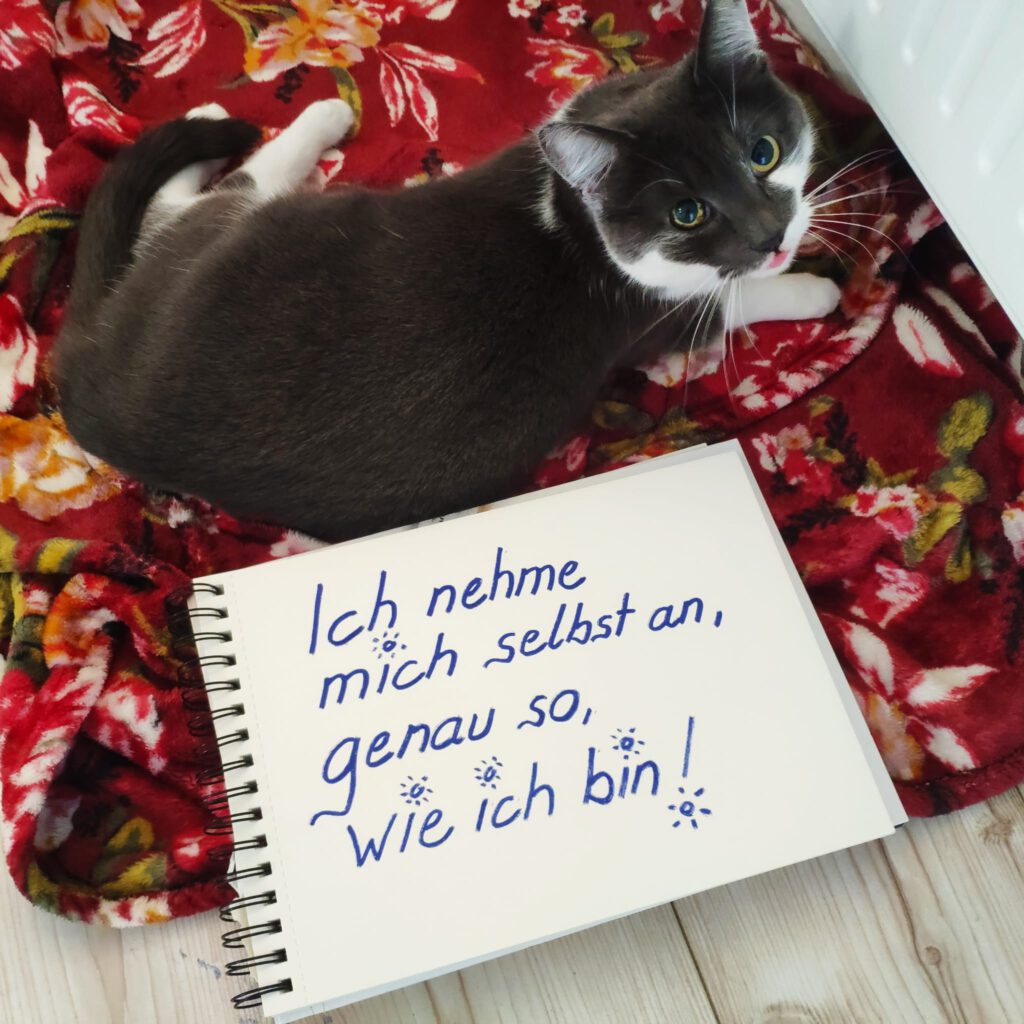 Ich nehme
mich selbst an,
genau so,
wie ich bin!